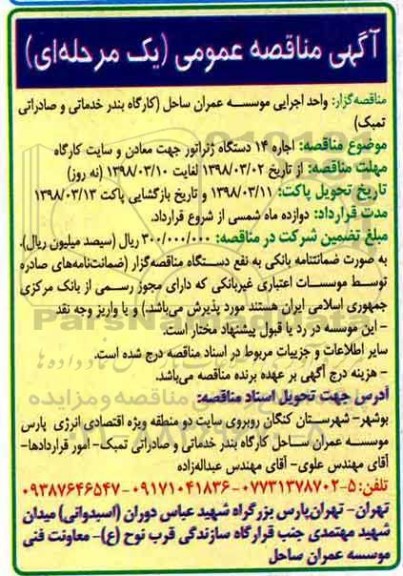 آگهی مناقصه عمومی (یک مرحله‌ای)
مناقصه‌گزار: واحد اجرایی موسسه عمران ساحل (کارگاه بندر خدماتی و صادراتی
تمبک)
موضوع مناقصه: اجاره ۱۴ دستگاه ژنراتور جهت معادن و سایت کارگاه
مهلت مناقصه: از تاریخ ۱۳۹۸/۰۳/۰۲ لغایت ۱۳۹۸/۰۳/۱۰ (نه روز)
تاریخ تحویل پاکت: ۱۳۹۸/۰۳/۱۱ و تاریخ بازگشایی پاکت ۱۳۹۸/۰۳/۱۳
مدت قرارداد: دوازده ماه شمسی از شروع قرارداد.
مبلغ تضمین شرکت در مناقصه: ۳۰۰/۰۰۰/۰۰۰ ریال (سیصد میلیون ریال)،
به صورت ضمانتنامه بانکی به نفع دستگاه مناقصه‌گزار (ضمانت‌نامه‌های صادره
توسط موسسات اعتباری غیربانکی که دارای مجوز رسمی از بانک مرکزی
جمهوری اسلامی ایران هستند مورد پذیرش می‌باشد.) و یا واریز وجه نقد
- این موسسه در رد یا قبول پیشنهاد مختار است.
سایر اطلاعات و جزییات مربوط در اسناد مناقصه درج شده است.
- هزینه درج آگهی بر عهده برنده مناقصه می‌باشد.
آدرس جهت تحویل اسناد مناقصه:
بوشهر- شهرستان کنگان روبروی سایت دو منطقه ویژه اقتصادی انرژی پارس
موسسه عمران ساحل کارگاه بندر خدماتی و صادراتی تمبک- امور قراردادها-
آقای مهندس علوی- آقای مهندس عبداله‌زاده
تلفن: ۵-۰۷۷۳۱۳۷۸۷۰۲ -۰۹۱۷۱۰۴۱۸۳۶ -۰۹۳۸۷۶۴۶۵۴۷
تهران- تهران‌پارس بزرگراه شهید عباس دوران (اسبدوانی) میدان
شهید مهتمدی جنب قرارگاه سازندگی قرب نوح (ع)- معاونت فنی
موسسه عمران ساحل